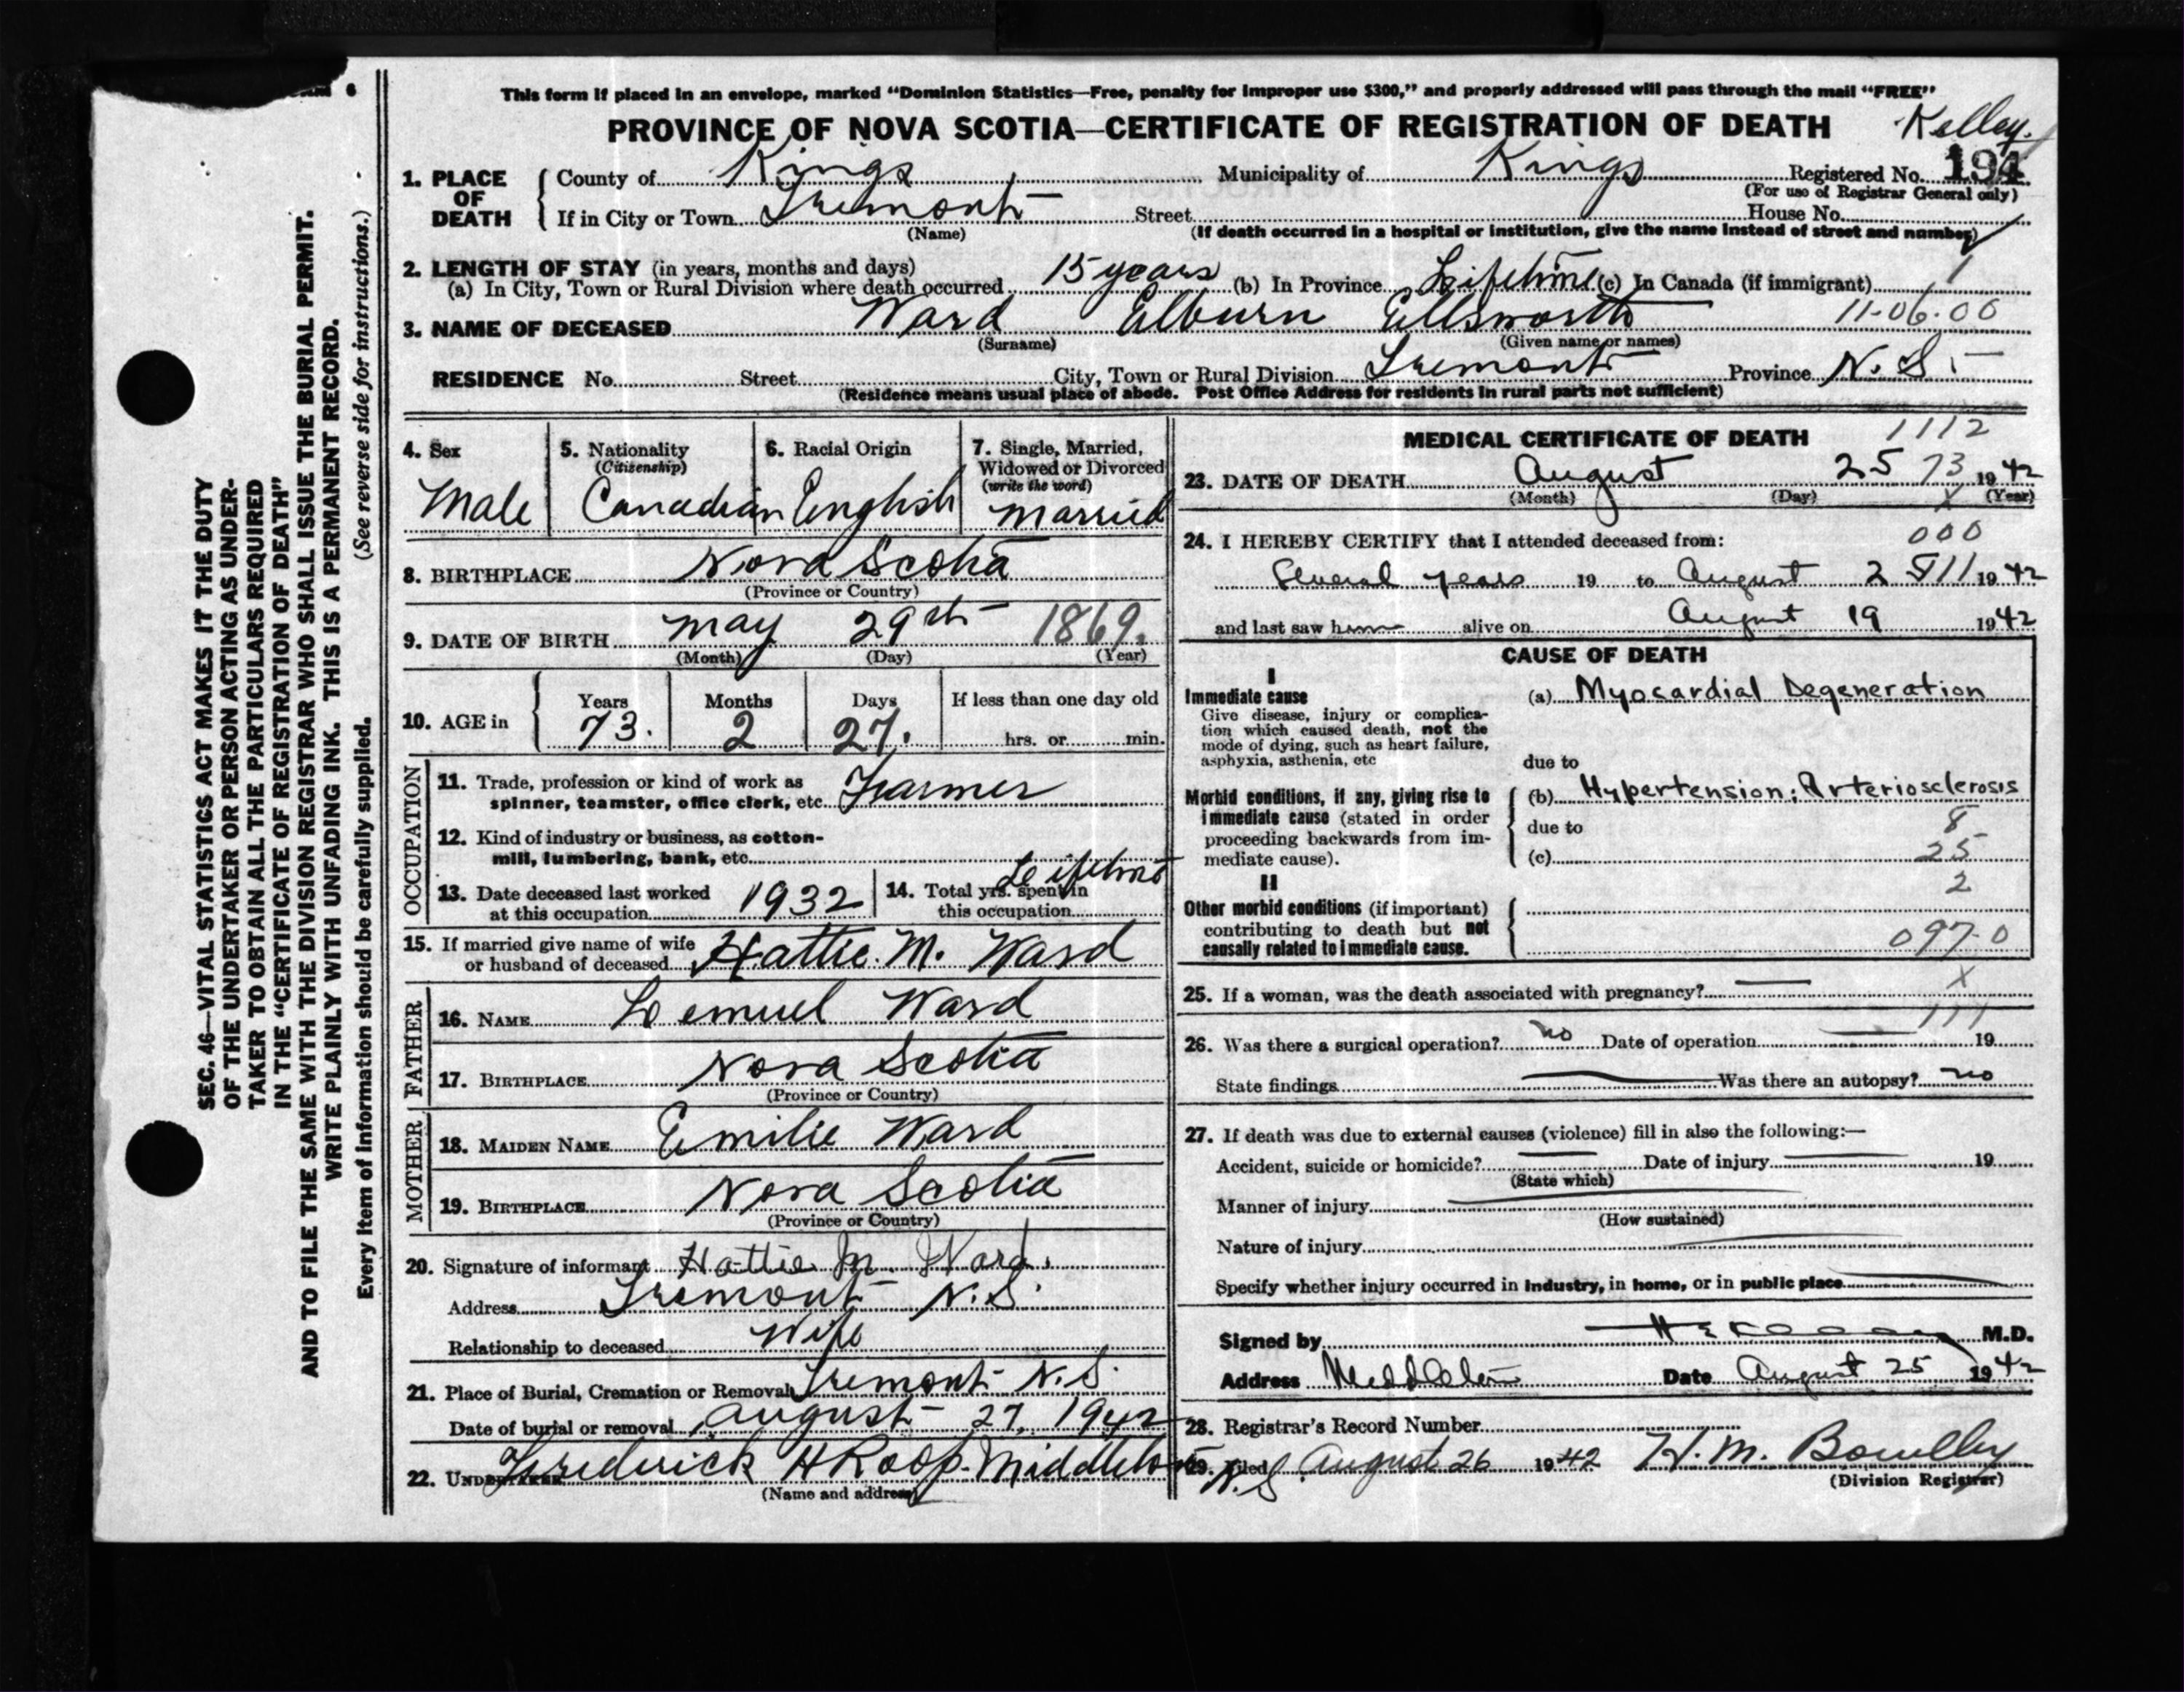 This form if placed in an envelope, marked "Dominion Statistics—Free, penalty for improper use $300," and properly addressed will pass through the mail "FREE"
PROVINCE OF NOVA SCOTIA—CERTIFICATE OF REGISTRATION OF DEATH Kelley.
1. PLACE OF DEATH County of Kings Municipality of Kings Registered No. 194
(For use of Registrar General only)
If in City or Town Tremont Street House No.
(Name) (If death occurred in a hospital or institution, give the name instead of street and number)
2. LENGTH OF STAY (in years, months and days)
(a) In City, Town or Rural Division where death occurred 15 years (b) In Province Lifetime (c) In Canada (if immigrant) 1
3. NAME OF DECEASED Ward Elburn Ellsworth 11-06-00
(Surname) (Given name or names)
RESIDENCE No. Street City, Town or Rural Division Tremont Province N.S.
(Residence means usual place of abode. Post Office Address for residents in rural parts not sufficient)
4. Sex 5. Nationality (Citizenship) 6. Racial Origin 7. Single, Married, Widowed or Divorced (write the word)
Male Canadian English Married
8. BIRTHPLACE Nova Scotia
(Province or Country)
9. DATE OF BIRTH May 29th 1869.
(Month) (Day) (Year)
10. AGE in Years Months Days If less than one day old
73. 2 27. hrs. or min.
OCCUPATION
11. Trade, profession or kind of work as spinner, teamster, office clerk, etc. Farmer
12. Kind of industry or business, as cotton-
mill, lumbering, bank, etc.
13. Date deceased last worked at this occupation 1932 14. Total yrs. spent in this occupation Lifetime
15. If married give name of wife or husband of deceased Hattie. M. Ward
FATHER
16. NAME Lemuel Ward
17. BIRTHPLACE Nova Scotia
(Province or Country)
MOTHER
18. MAIDEN NAME Emilie Ward
19. BIRTHPLACE Nova Scotia
(Province or Country)
20. Signature of informant Hattie M. Ward.
Address Tremont N.S.
Relationship to deceased Wife
21. Place of Burial, Cremation or Removal Tremont N.S.
Date of burial or removal August 27, 1942
22. UNDERTAKER Frederick H Roop. Middleton N.S
(Name and address)
MEDICAL CERTIFICATE OF DEATH 1112
23. DATE OF DEATH August 25 73 1942
(Month) (Day) X (Year)
24. I HEREBY CERTIFY that I attended deceased from: 000
Several years 19 to August 25 11 1942
and last saw him alive on August 19 1942
CAUSE OF DEATH
I
Immediate cause (a) Myocardial Degeneration
Give disease, injury or complica-
tion which caused death, not the
mode of dying, such as heart failure,
asphyxia, asthenia, etc
due to
Morbid conditions, if any, giving rise to (b) Hypertension; Arteriosclerosis
immediate cause (stated in order due to 8
proceeding backwards from im-
mediate cause). (c) 25
II 2
Other morbid conditions (if important)
contributing to death but not
causally related to immediate cause. 097.0
25. If a woman, was the death associated with pregnancy? — X
111
26. Was there a surgical operation? no Date of operation 19
State findings Was there an autopsy? no
27. If death was due to external causes (violence) fill in also the following:—
Accident, suicide or homicide? Date of injury 19
(State which)
Manner of injury
(How sustained)
Nature of injury
Specify whether injury occurred in industry, in home, or in public place
Signed by M.D.
Address Middleton Date August 25 1942
28. Registrar's Record Number
29. Filed August 26 1942 H. M.
(Division Registrar)
6
SEC. 46—VITAL STATISTICS ACT MAKES IT THE DUTY
OF THE UNDERTAKER OR PERSON ACTING AS UNDER-
TAKER TO OBTAIN ALL THE PARTICULARS REQUIRED
IN THE "CERTIFICATE OF REGISTRATION OF DEATH"
AND TO FILE THE SAME WITH THE DIVISION REGISTRAR WHO SHALL ISSUE THE BURIAL PERMIT.
WRITE PLAINLY WITH UNFADING INK. THIS IS A PERMANENT RECORD.
Every item of information should be carefully supplied. (See reverse side for instructions.)